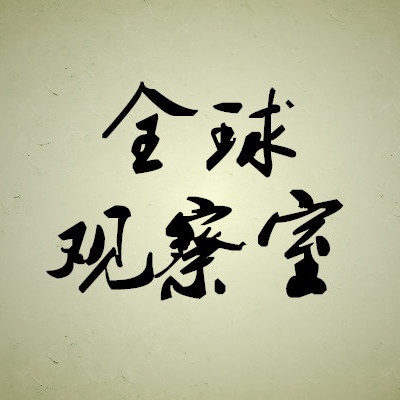 全球
观察室